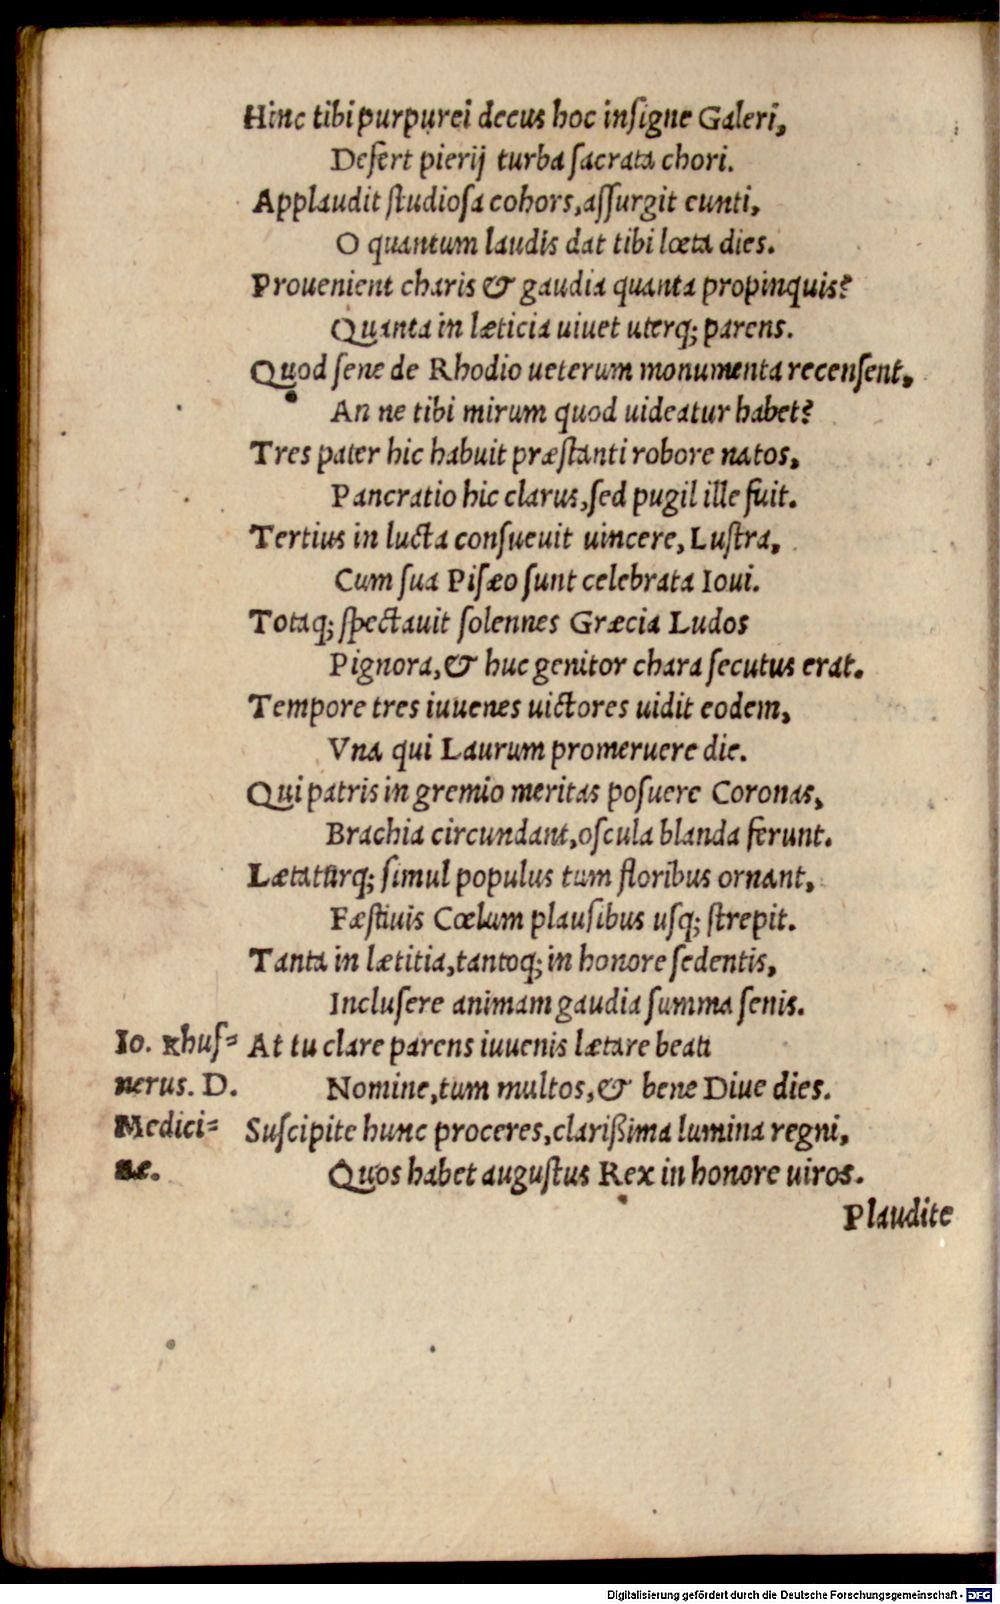 Hinc tibi purpurei decus hoc inſigne Galeri,
Defert pierij turba ſacrata chori.
Applaudit ſtudioſa cohors, aſſurgit eunti,
O quantum laudis dat tibi lœta dies.
Prouenient charis & gaudia quanta propinquis?
Quanta in læticia uiuet uterq; parens.
Quod ſene de Rhodio ueterum monumenta recenſent,
An ne tibi mirum quod uideatur habet?
Tres pater hic habuit præſtanti robore natos,
Pancratio hic clarus, ſed pugil ille fuit.
Tertius in lucta conſueuit uincere, Luſtra,
Cum ſua Piſæo ſunt celebrata Ioui.
Totaq; ſpectauit ſolennes Græcia Ludos
Pignora, & huc genitor chara ſecutus erat.
Tempore tres iuuenes uictores uidit eodem,
Vna qui Laurum promeruere die.
Qui patris in gremio meritas poſuere Coronas,
Brachia circundant, oſcula blanda ferunt.
Lætatûrq; ſimul populus tum floribus ornant,
Fæſtiuis Cœlum plauſibus uſq; ſtrepit.
Tanta in lætitia, tantoq; in honore ſedentis,
Incluſere animam gaudia ſumma ſenis.
Io. Rhuſ= At tu clare parens iuuenis lætare beati
nerus. D. Nomine, tum multos, & bene Diue dies.
Medici= Suſcipite hunc proceres, clarißima lumina regni,
næ. Quos habet auguſtus Rex in honore uiros.
Plaudite
Digitalisierung gefördert durch die Deutsche Forschungsgemeinschaft - DFG